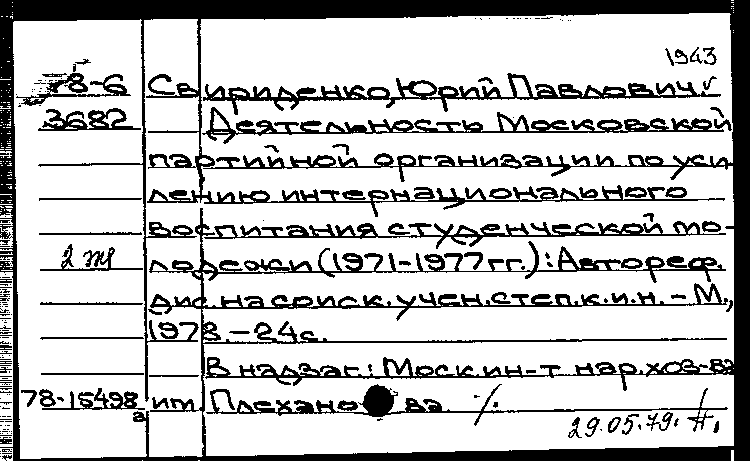 1943
78-6 Свириденко, Юрий Павлович.
3682 Деятельность Московской
партийной организации по уси-
лению интернационального
воспитания студенческой мо-
2 лодежи (1971-1977гг.): Автореф.
дис. на соиск. учен. степ. к.и.н. - М.,
1978. - 24с.
В надзаг.: Моск. ин-т нар. хоз-ва
78-15498 им. Плеханова ./.
а
29.05.79.